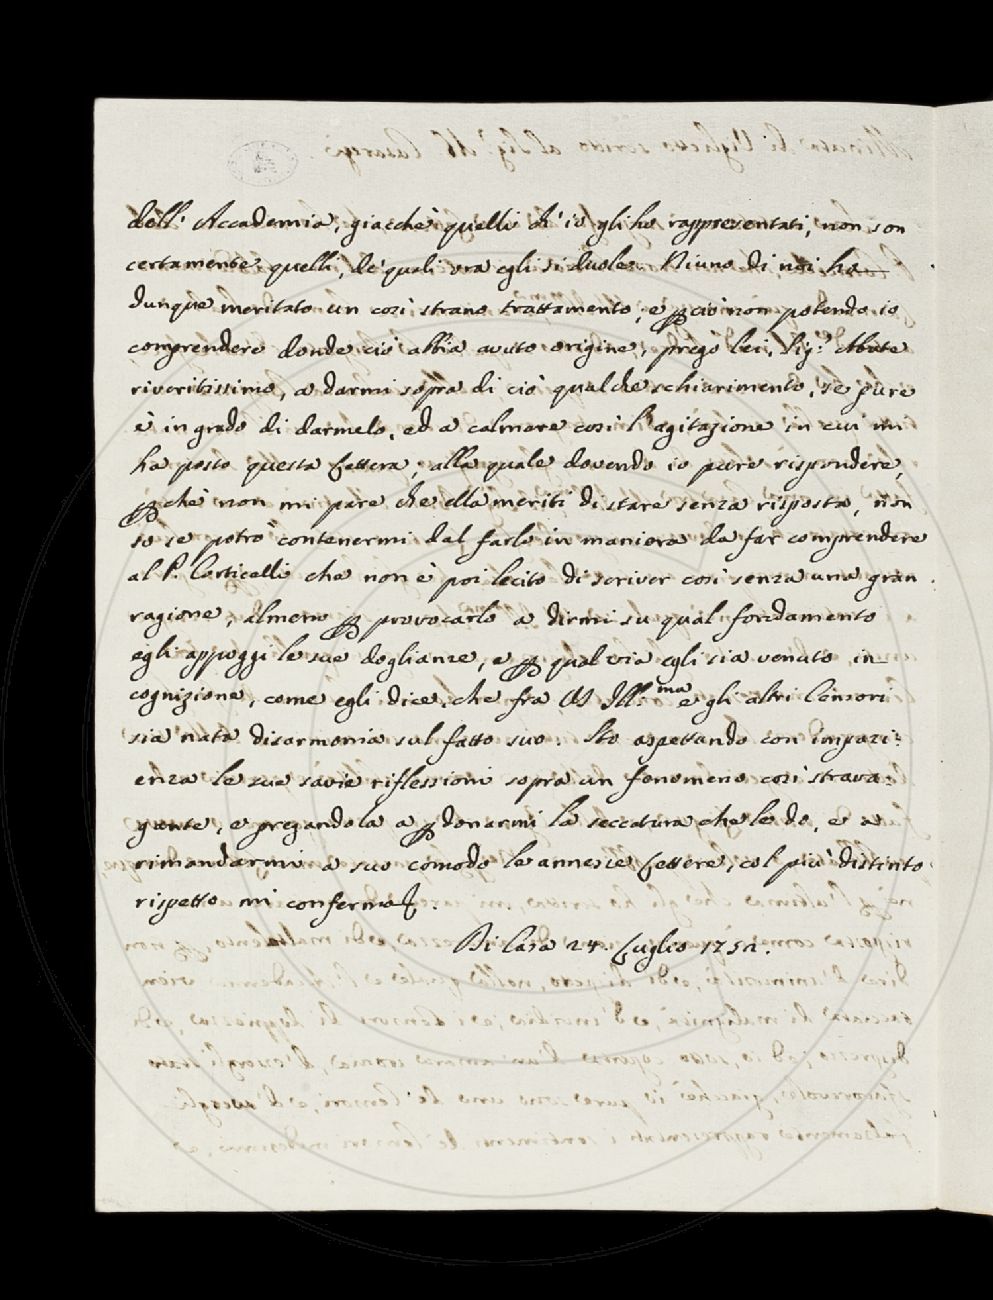 dell' Accademia, giacchè quelli ch' io gli ho rappresentati, non son
certamente quelli, de' quali ora egli si duole. Niuno di noi ha
dunque meritato un così strano trattamento, e p ciò non potendo io
comprendere donde ciò abbia avuto origine, prego lei, Sig.r Abate
riveritissimo, a darmi sopra di ciò qualche schiarimento, se pure
è in grado di darmelo, ed a calmare così l'agitazione in cui mi
ha posto questa Lettera; alla quale dovendo io pure rispondere,
pchè non mi pare che ella meriti di stare senza risposta, non
so se potrò contenermi dal farlo in maniera da far comprendere
al P. Corticelli che non è poi lecito di scriver così senza una gran
ragione, almeno p provocarlo a dirmi su qual fondamento
egli appoggi le sue doglianze, e p qual via egli sia venuto in
cognizione, come egli dice, che fra VS Ill:ma e gli altri Censori
sia nata disarmonia sul fatto suo. Sto aspettando con impazi:
enza le sue savie riflessioni sopra un fenomeno così strava:
gante, e pregandola a pdonarmi la seccatura che le do, e a
rimandarmi a suo comodo le annesse Lettere, col più distinto
rispetto mi confermo
Di Casa 24 Luglio 1752.